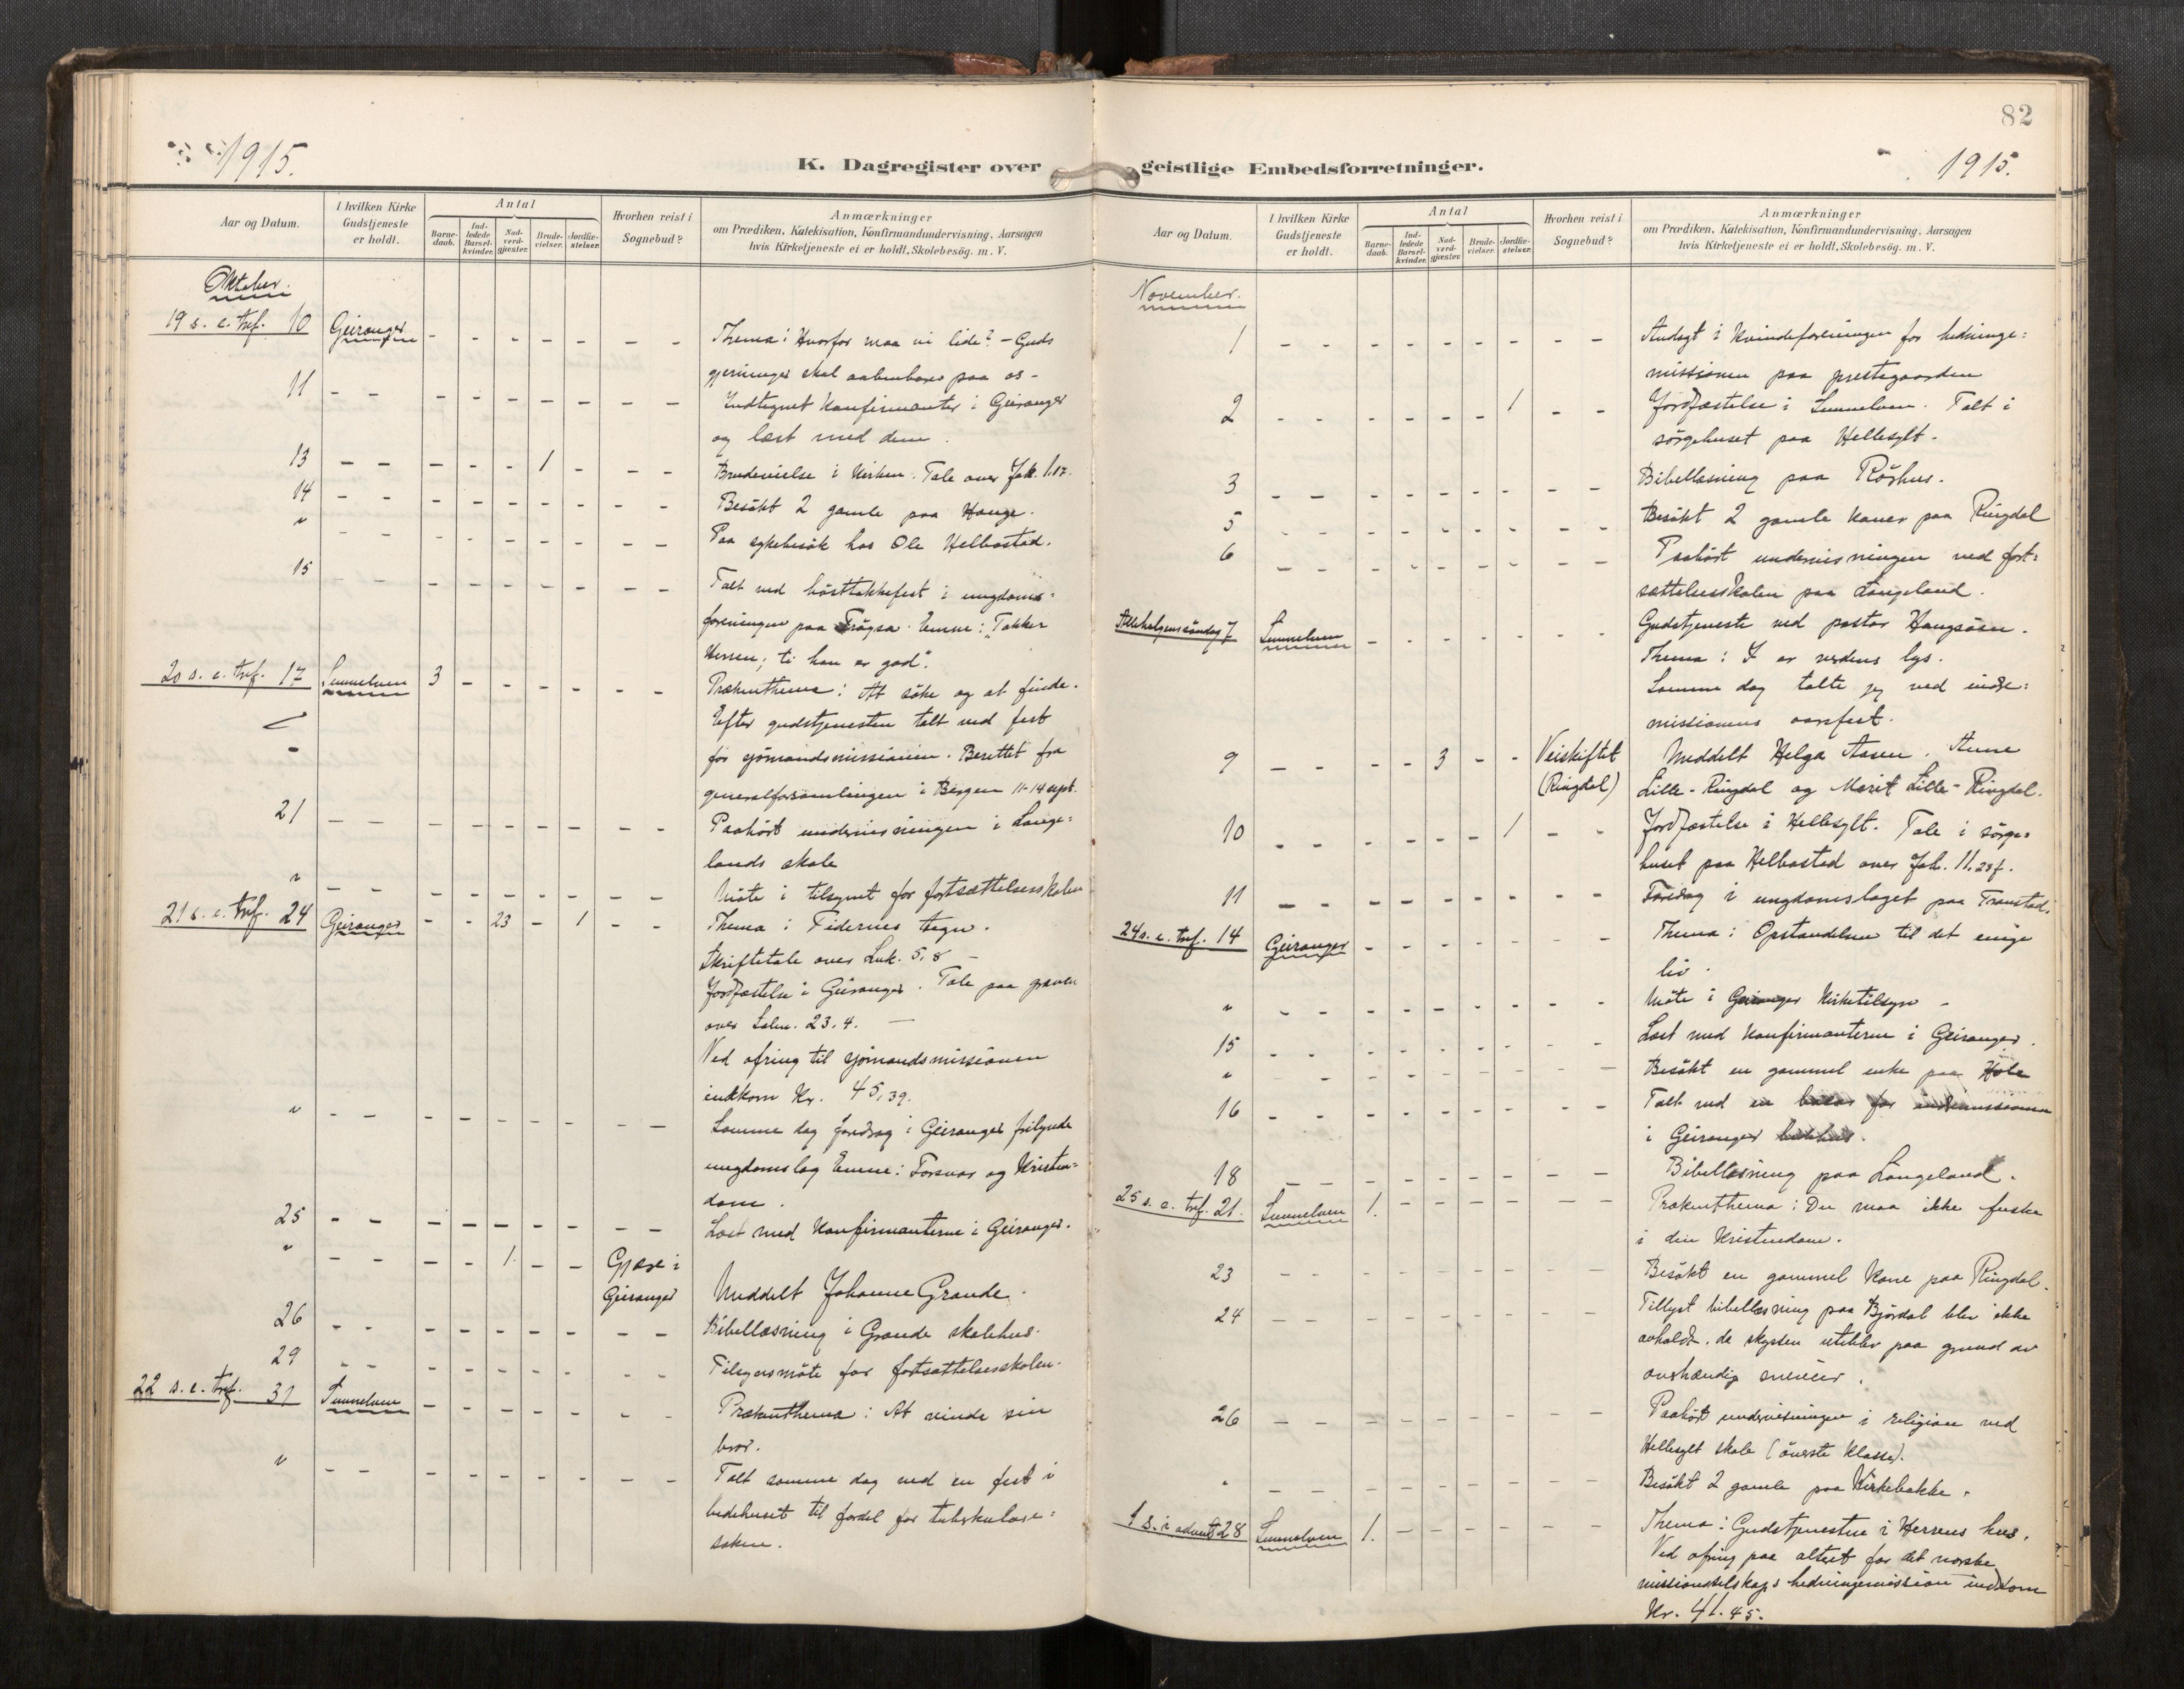 82
1915.
K. Dagregister over
geistlige Embedsforretninger.
1915.
Aar og Datum.
I hvilken Kirke Gudstjeneste er holdt.
Antal
Barne-daab.
Ind-ledede Barsel-kvinder.
Nad-verd-gjæster.
Brude-vielser.
Jordfæ-stelser.
Hvorhen reist i Sognebud?
Anmærkninger
om Prædiken, Katekisation, Konfirmandundervisning, Aarsagen
hvis Kirketjeneste ei er holdt, Skolebesög. m. V.
Oktober.
19 s. e. tref. 10 Geiranger - - - - - - - Thema: Hvorfor maa vi lide? - Guds
gjerninger skal aabenbares paa os -
11 - - - - - - - - - Indtegnet konfirmanter i Geiranger
og læst med dem.
13 - - - - - 1 - - - Brudevielse i kirken. Tale over Jak. 1.17.
14 - - - - - - - - - Besökt 2 gamle paa Hauge.
" - - - - - - - - - Paa sykebesök hos Ole Hellbostad.
15 - - - - - - - - - Talt ved hösttakkefest i ungdoms-
foreningen paa Emne: "Takker
Herren; ti han er god".
20 s. e. tref. 17 Sunnelven 3 - - - - - - Prækenthema: At söke og at finde.
Efter gudstjenesten talt ved fest
for sjömandsmissionen. Berettet fra
generalforsamlingen i Bergen 11-14 sept.
21 - - - - - - - - - Paahört undervisningen i Lange-
lands skole
" - - - - - - - - - Möte i tilsynet for fortsættelsesskolen
21 s. e. tref. 24 Geiranger - - 23 - 1 - - Thema: Tidernes tegn.
Skriftetale over Luk. 5,8 -
Jordfæstelse i Geiranger. Tale paa graven
over Salm. 23.4. -
Ved ofring til sjömandsmissionen
indkom Kr. 45,39.
" - - - - - - - - - Samme dag foredrag i Geiranger frilynde
ungdomslag Emne: Forsvar og Kristen-
dom.
25 - - - - - - - - - Læst med konfirmanterne i Geiranger.
" - - - - 1 - - Gjøse i
Geiranger Meddelt Johanne Grande.
26 - - - - - - - - - Bibellæsning i Grande skolehus.
29 - - - - - - - - - Tilsynsmöte for fortsættelsesskolen.
22 s. e. tref. 31 Sunnelven - - - - - - - Prækenthema: At vinde sin
bror.
" - - - - - - - - - Talt samme dag ved en fest i
bedehuset til fordel for tuberkulose-
saken.
Aar og Datum.
I hvilken Kirke Gudstjeneste er holdt.
Antal
Barne-daab.
Ind-ledede Barsel-kvinder.
Nad-verd-gjæster.
Brude-vielser.
Jordfæ-stelser.
Hvorhen reist i Sognebud?
Anmærkninger
om Prædiken, Katekisation, Konfirmandundervisning, Aarsagen
hvis Kirketjeneste ei er holdt, Skolebesög. m. V.
November.
1 - - - - - - - - - Andagt i kvindeforeningen for hedninge-
missionen paa prestegaarden
2 - - - - - - 1 - - Jordfæstelse i Sunnelven. Talt i
sörgehuset paa Hellesylt.
3 - - - - - - - - - Bibellæsning paa Röyhus.
5 - - - - - - - - - Besökt 2 gamle koner paa Ringdal
6 - - - - - - - - - Paahört undervisningen ved fort-
sættelsesskolen paa Langeland.
Allehelgenssöndag 7 Sunnelven - - - - - - - Gudstjeneste ved pastor Haugsöen.
Thema: I er verdens lys.
Samme dag talte jeg ved indre-
missionens aarsfest.
9 - - - - 3 - - Veiskiftet
(Ringdal) Meddelt Helga Aasen, Anne
Lille-Ringdal og Marit Lille-Ringdal.
10 - - - - - - 1 - - Jordfæstelse i Hellesylt. Tale i sörge-
huset paa Hellbostad over Joh. 11.23f.
11 - - - - - - - - - Foredrag i ungdomslaget paa Tronstad.
24 s. e. tref. 14 Geiranger - - - - - - - Thema: Opstandelsen til det evige
liv.
" - - - - - - - - - Möte i Geiranger kirketilsyn -
15 - - - - - - - - - Læst med konfirmanterne i Geiranger.
" - - - - - - - - - Besökt en gammel enke paa Hole
16 - - - - - - - - - Talt ved en basar for indremissionen
i Geiranger
18 - - - - - - - - - Bibellæsning paa Langeland.
25 s. e. tref. 21. Sunnelven 1. - - - - - - Prækenthema: Du maa ikke fuske
i din kristendom.
23 - - - - - - - - - Besökt en gammel kone paa Ringdal.
24 - - - - - - - - - Tillyst bibellæsning paa Björdal blev ikke
avholdt, da skyssen uteblev paa grund av
uveier.
26 - - - - - - - - - Paahört undervisningen i religion ved
Hellesylt skole (överste klasse).
" - - - - - - - - - Besökt 2 gamle paa Kirkebakke.
1 s. i advent 28 Sunnelven 1. - - - - - - Thema: Gudstjenesten i Herrens hus.
Ved ofring paa alteret for det norske
missionsselskaps hedningemission indkom
Kr. 41.45.